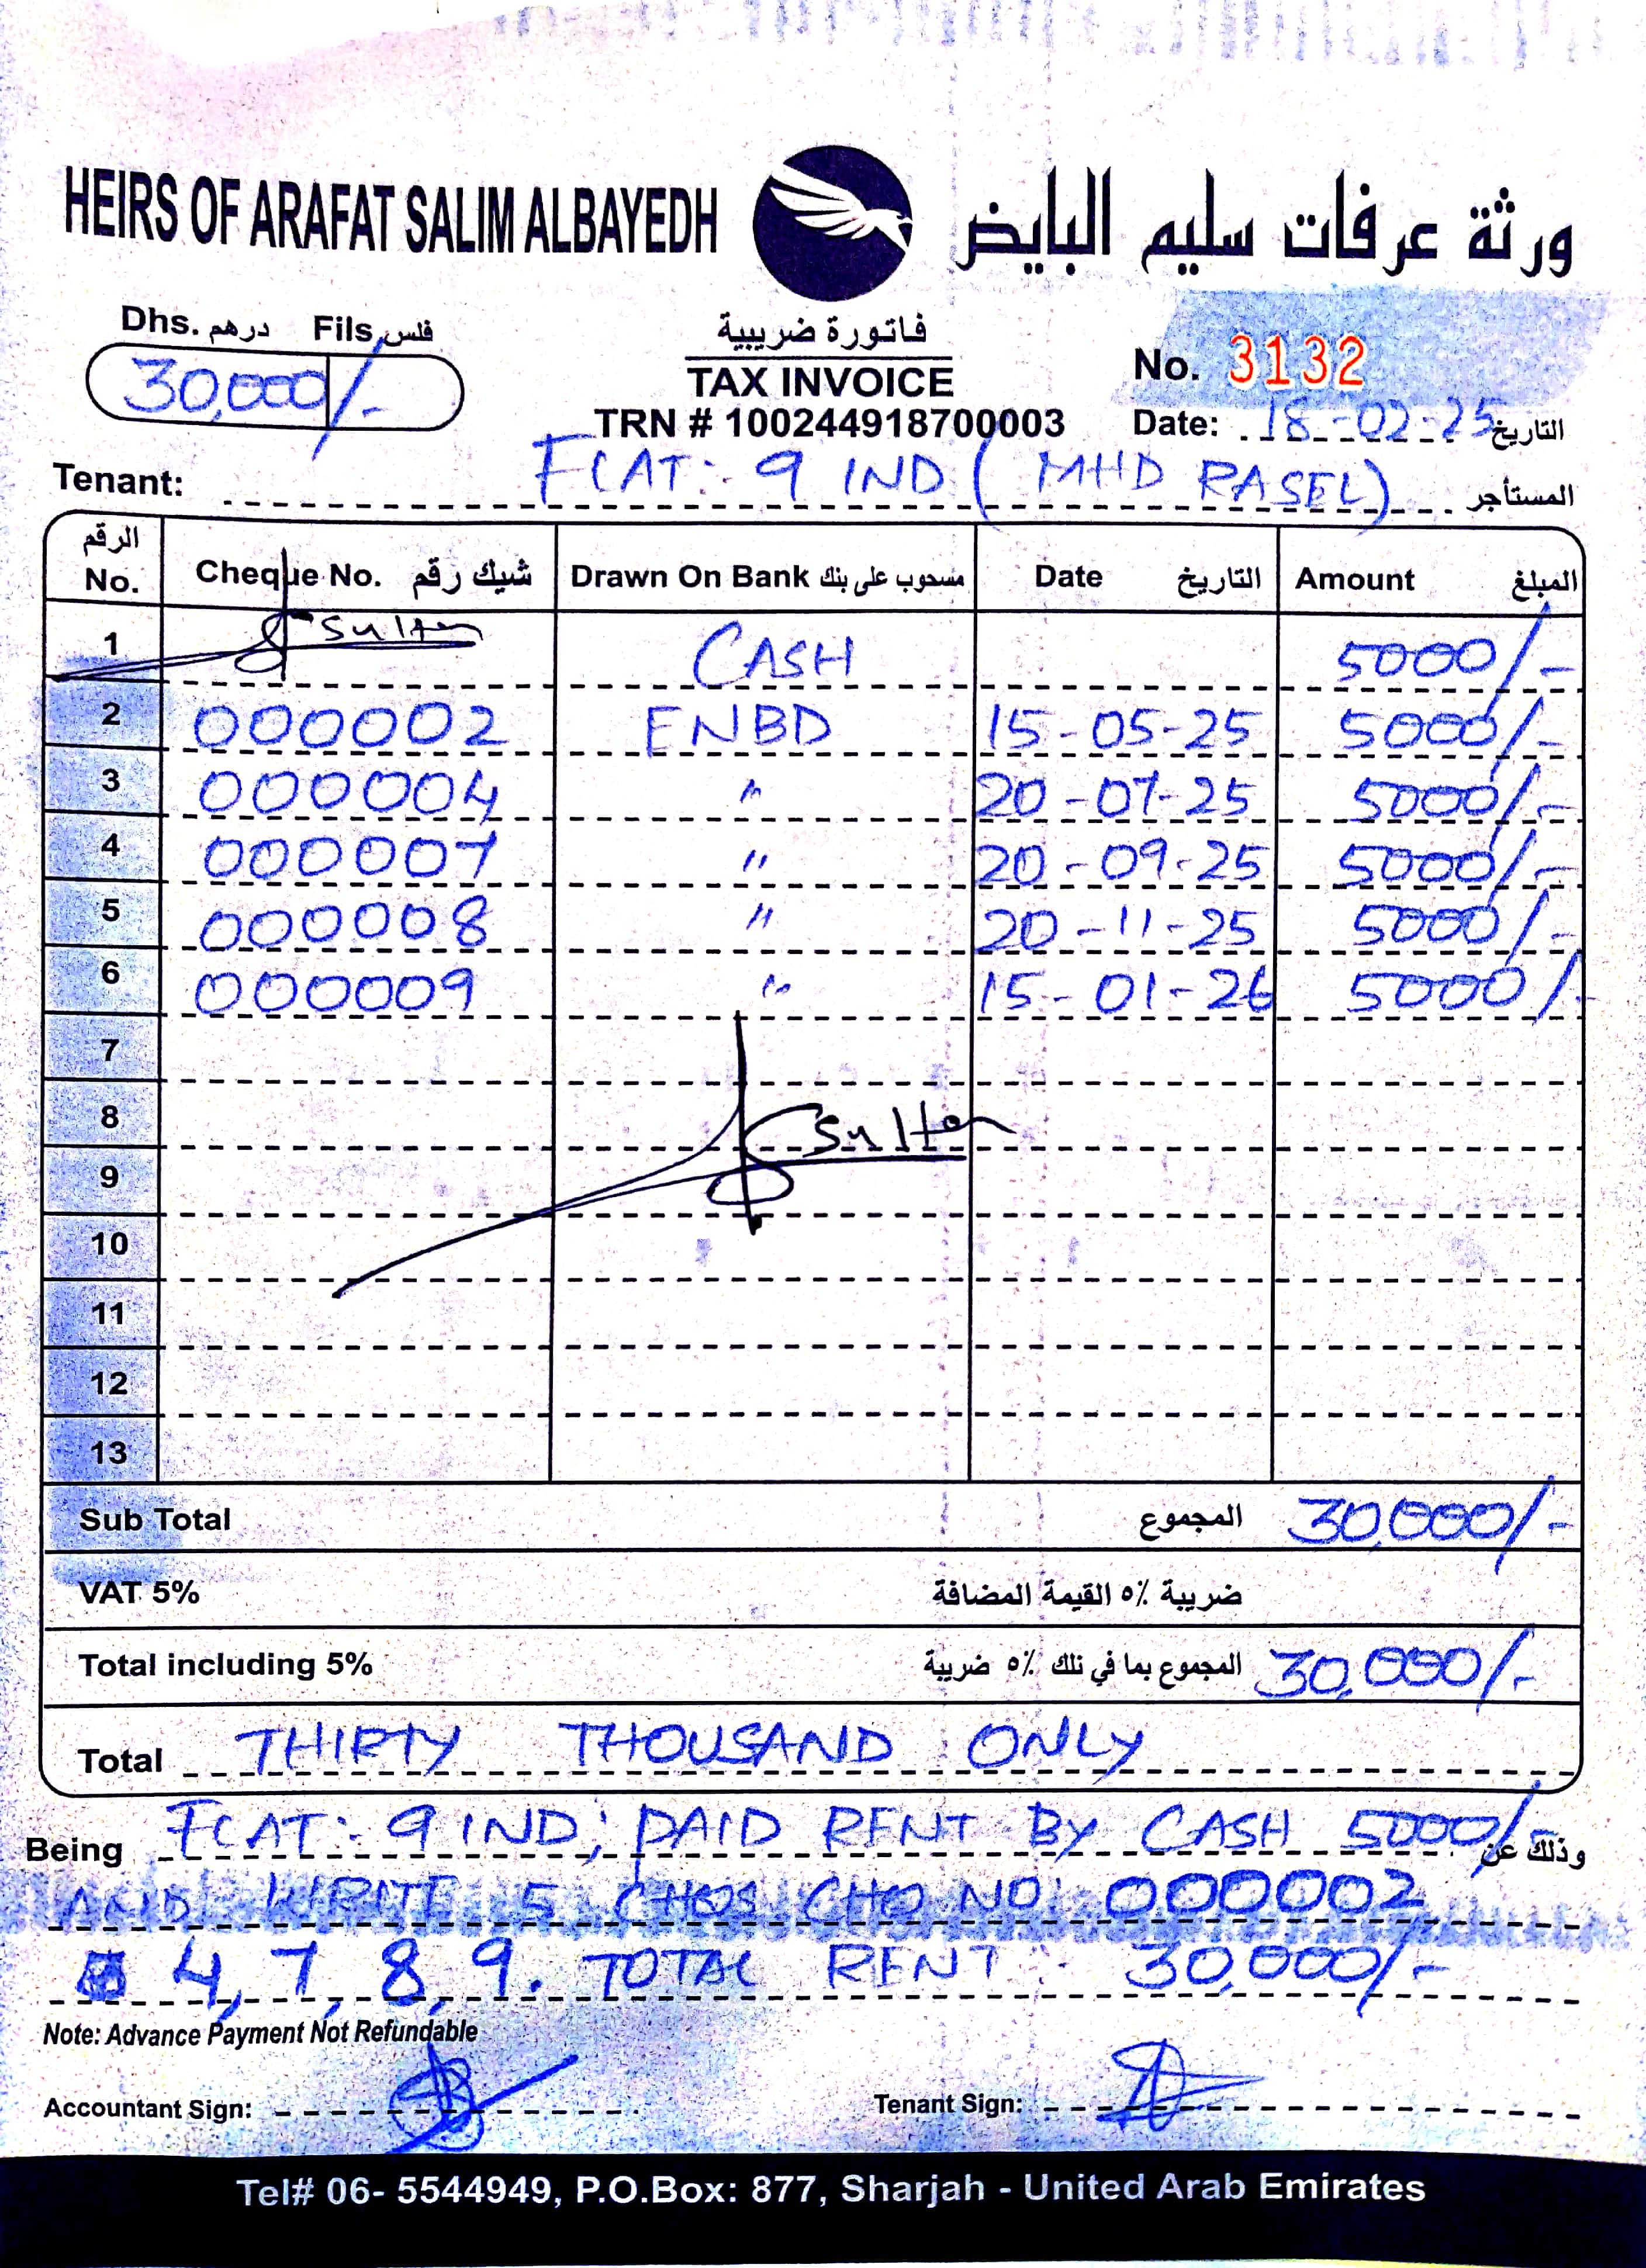 HEIRS OF ARAFAT SALIM ALBAYEDH ورثة عرفات سليم البايض
Dhs. درهم Fils فلس
30,000/-
فاتورة ضريبية
TAX INVOICE
TRN # 100244918700003
No. 3132
Date: 18-02-25 التاريخ
Tenant: FLAT:- 9 IND (MHD RASEL) المستأجر
الرقم No. Cheque No. شيك رقم Drawn On Bank مسحوب على بنك Date التاريخ Amount المبلغ
1 Sultan CASH 5000/-
2 000002 ENBD 15-05-25 5000/-
3 000004 " 20-07-25 5000/-
4 000007 " 20-09-25 5000/-
5 000008 " 20-11-25 5000/-
6 000009 " 15-01-26 5000/-
7
8 Sultan
9
10
11
12
13
Sub Total المجموع 30,000/-
VAT 5% ضريبة ٥٪ القيمة المضافة
Total including 5% المجموع بما في تلك ٥٪ ضريبة 30,000/-
Total THIRTY THOUSAND ONLY
Being FLAT:- 9 IND; PAID RENT BY CASH 5000/- وذلك عن
AND WRITE 5 CHQS CHQ NO: 000002
4, 7, 8, 9. TOTAL RENT: 30,000/-
Note: Advance Payment Not Refundable
Accountant Sign: Tenant Sign:
Tel# 06- 5544949, P.O.Box: 877, Sharjah - United Arab Emirates